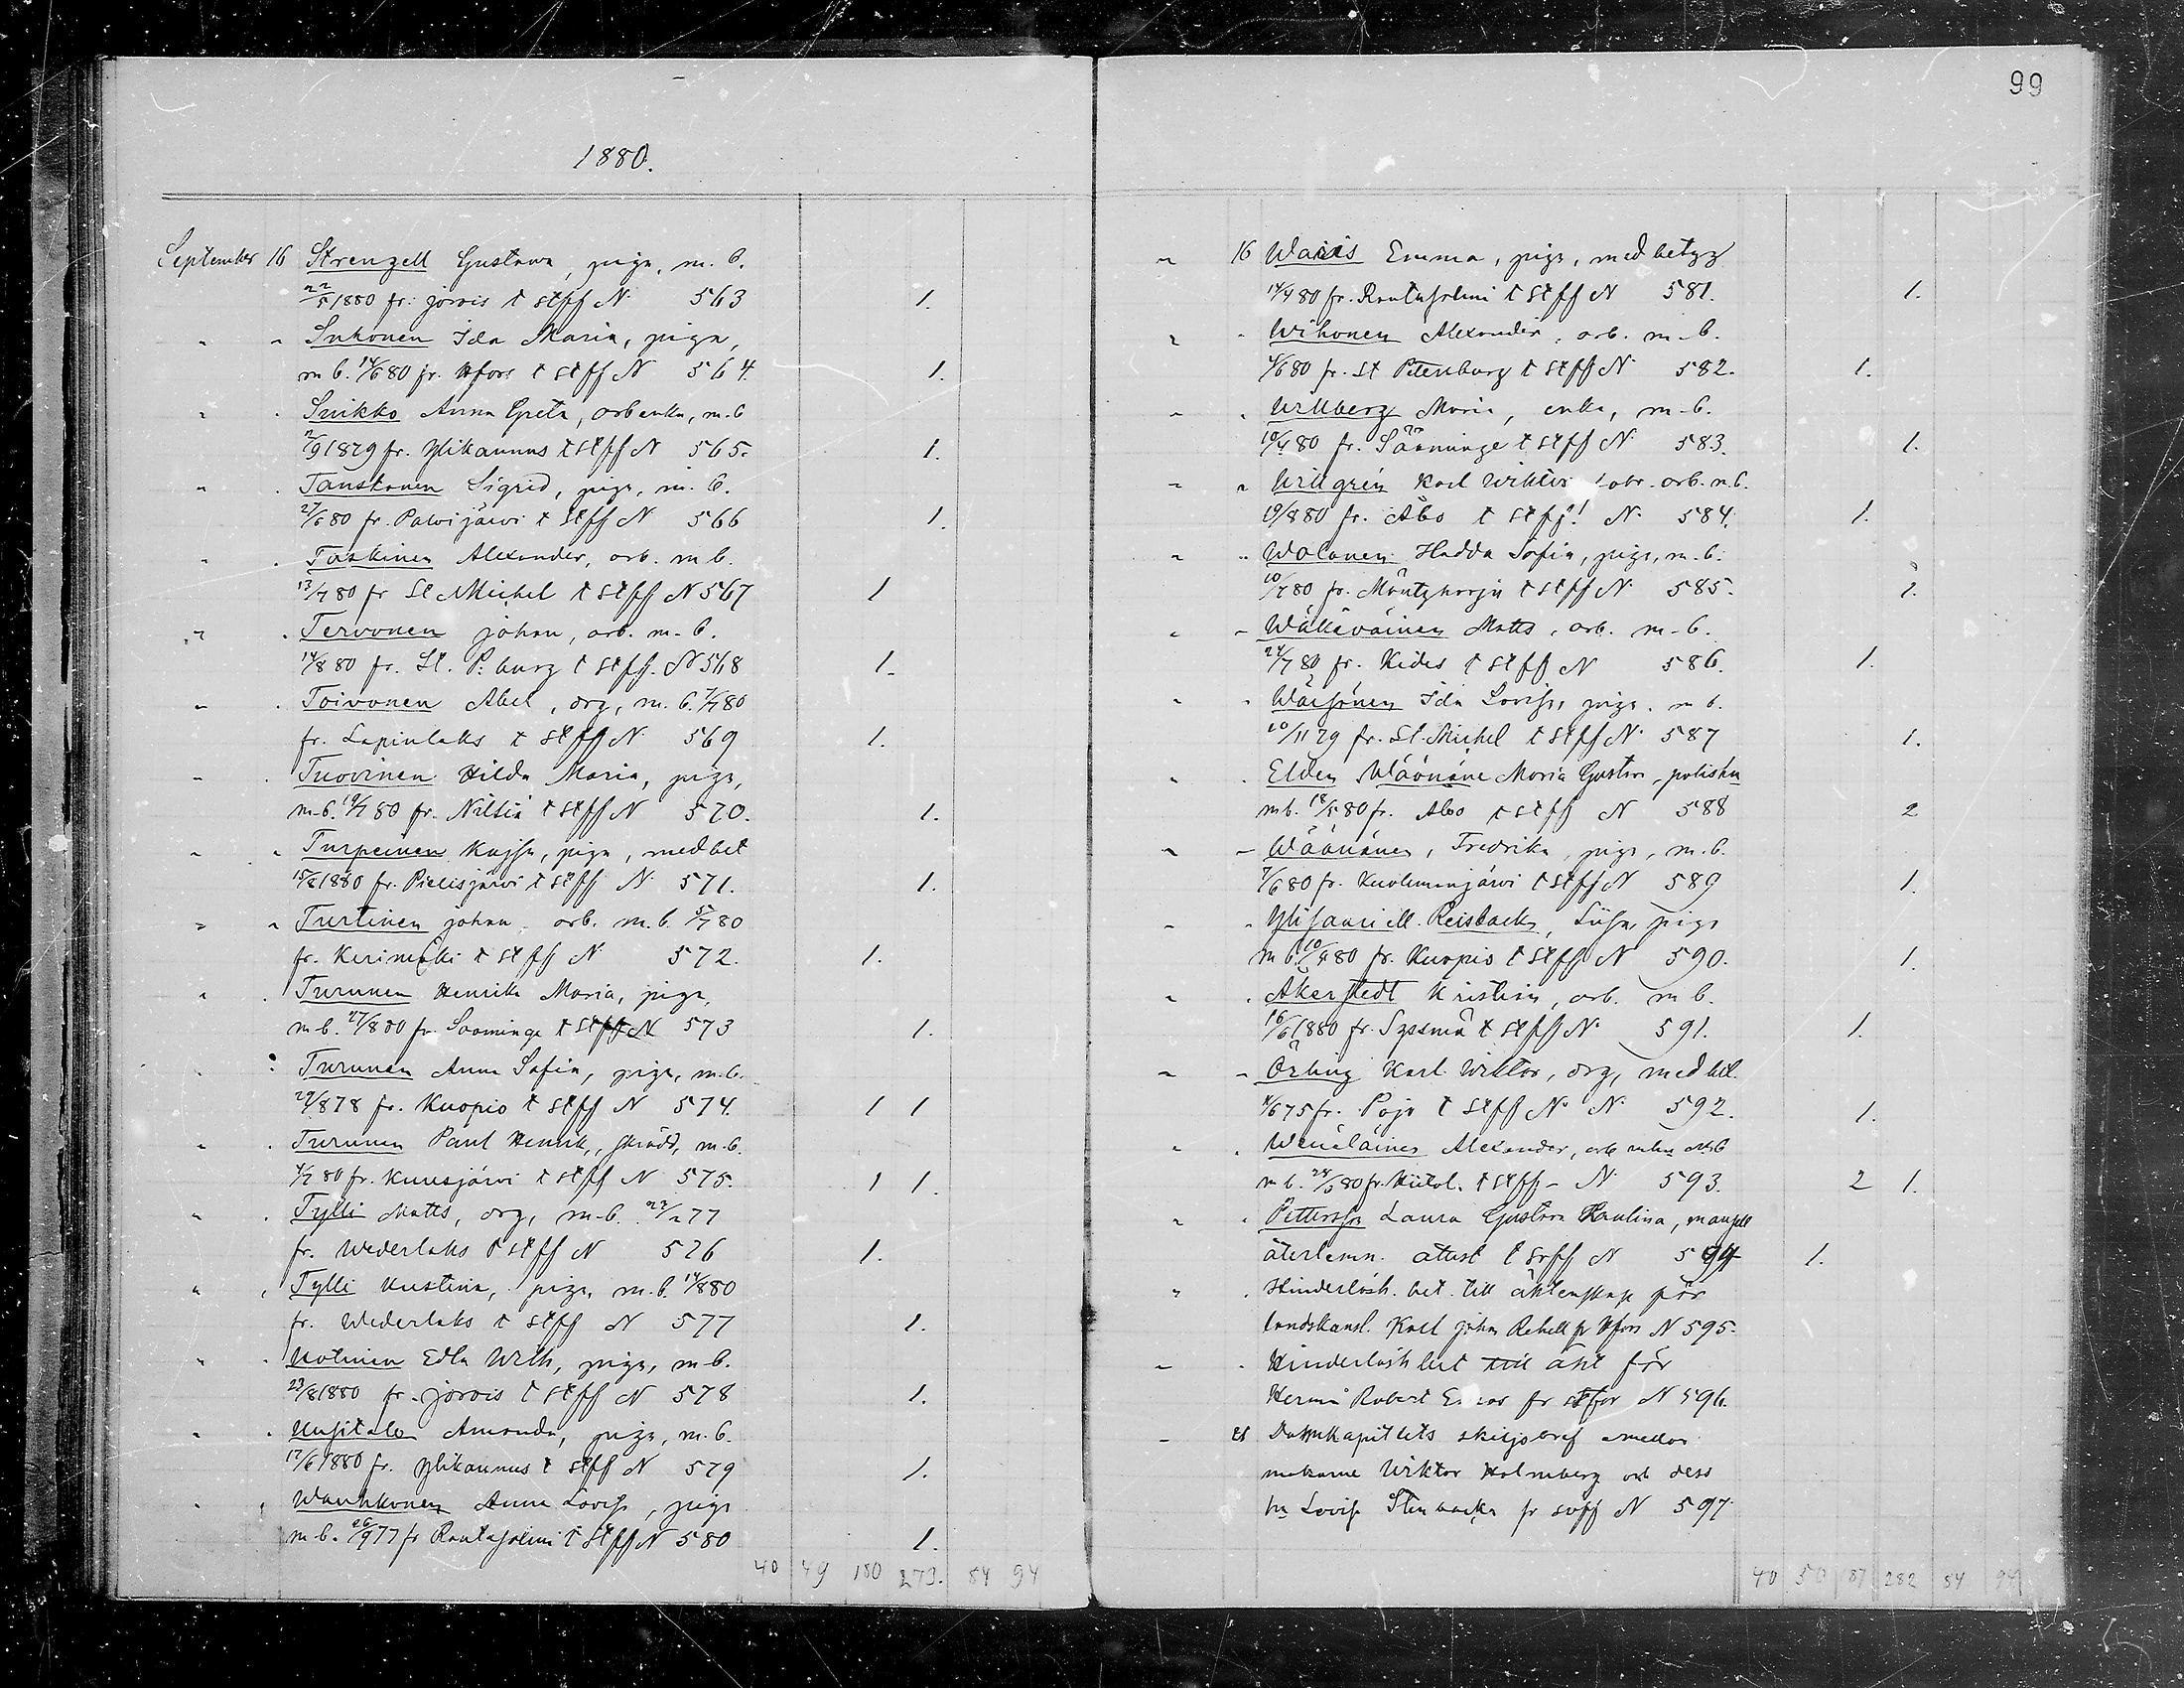 99
1880.
September 16 Strenzell Gustava, piga, m. b.
22/5 1880 fr. Jorois t stff N 563 1.
" " Suhonen Ida Maria, piga,
m b. 14/6 80 fr. Hfors t stff N 564. 1.
" " Suikko Anna Greta, arb enka, m. b
2/9 1879 fr. Ylikannus t stff N 565. 1.
" " Tanskanen Sigrid, piga, m. b.
27/6 80 fr. Palvijärvi t stff N 566 1.
" " Taskinen Alexander, arb. m b.
13/7 80 fr St Michel t stff N 567 1
" " Tervonen Johan, arb. m. b.
14/8 80 fr. St. P:burg t stff. N 568 1.
" " Toivonen Abel, drg, m. b. 7/7 80
fr. Lapinlaks t stff N 569 1.
" " Tuovinen Hilda Maria, piga,
m. b. 19/7 80 fr. Nilsiä t stff N 570. 1.
" " Turpeinen Kajsa, piga, med bet
15/8 1880 fr. Pielisjärvi t stff N 571. 1.
" " Turtinen Johan, arb. m. b. 5/7 80
fr. Kerimäki t stff N 572. 1.
" " Turunen Henrika Maria, piga,
m b. 27/8 80 fr. Sääminge t stff N 573 1.
" " Turunen Anna Sofia, piga, m. b.
29/8 78 fr. Kuopio t stff N 574. 1 1
" " Turunen Paul Henrik, skrädd, m. b.
4/7 80 fr. Kuusjärvi t stff N 575. 1 1.
" " Tylli Matts, drg, m. b. 22/2 77
fr. Wederlaks t stff N 576 1.
" " Tylli Kristina, piga, m. b. 14/8 80
fr. Wederlaks t stff N 577 1.
" " Uotinen Edla Wilh, piga, m b.
23/8 1880 fr. Jorois t stff N 578 1.
" " Uusitalo Amanda, piga, m. b.
17/6 1880 fr. Ylikannus t stff N 579 1.
" " Wanhkonen Anna Lovisa, piga
m b. 26/9 77 fr Rantasalmi t stff N 580 1.
40 49 180 273. 54 94
" 16 Waris Emma, piga, med betyg
14/4 80 fr. Rantasalmi t stff N 581. 1.
" " Wihonen Alexander, arb. m. b.
4/6 80 fr. St Petersburg t stff N 582. 1.
" " Willberg Maria, enka, m. b.
10/4 80 fr. Sääminge t stff N 583. 1.
" " Willgrén Karl Wiktor arb. m. b.
19/8 80 fr. Åbo t stff! N 584. 1.
" " Wolanen Hedda Sofia, piga, m. b.
10/7 80 fr. Mäntyharju t stff N 585. 1.
" " Wäkeväinen Matts, arb. m. b.
24/7 80 fr. Kides t stff N 586. 1.
" " Wäisänen Ida Lovisa, piga. m b.
20/11 79 fr. St. Michel t stff N 587 1.
" " Elden Wäänäne Maria Gustava, poliskn
m b. 18/5 80 fr. Åbo t stff N 588 2
" " Wäänänen, Fredrika, piga, m. b.
7/6 80 fr. Kuolemanjärvi t stff N 589 1.
" " Ylisaari ell. Reisbacka, Liisa, piga
m b. 10/4 80 fr. Kuopio t stff N 590. 1.
" " Åkerstedt Kristian, arb. m b.
16/6 1880 fr. Sysmä t stff N 591. 1.
" " Örling Karl Wiktor, drg, med bet.
11/6 75 fr. Pojo t stff N N 592. 1.
" " Wenäläinen Alexander, arb
m b. 24/5 80 fr. Hiitol. t stff N 593. 2 1.
" " Pettersson Laura Gustava Paulina, mansell
återlemn. attest t stff N 594 1.
" " Hinderlösh. bet. till äktenskap för
landskansl. Karl Johan Rehell fr Hfors N 595.
" " Hinderlösh bet till äkt för
Herman Robert fr stff N 596.
" 21 Domkapitlets skiljobref emellan
makarne Wiktor Holmberg och dess
hu Lovisa Stenbacka fr stff N 597
40 50 187 282 54 94